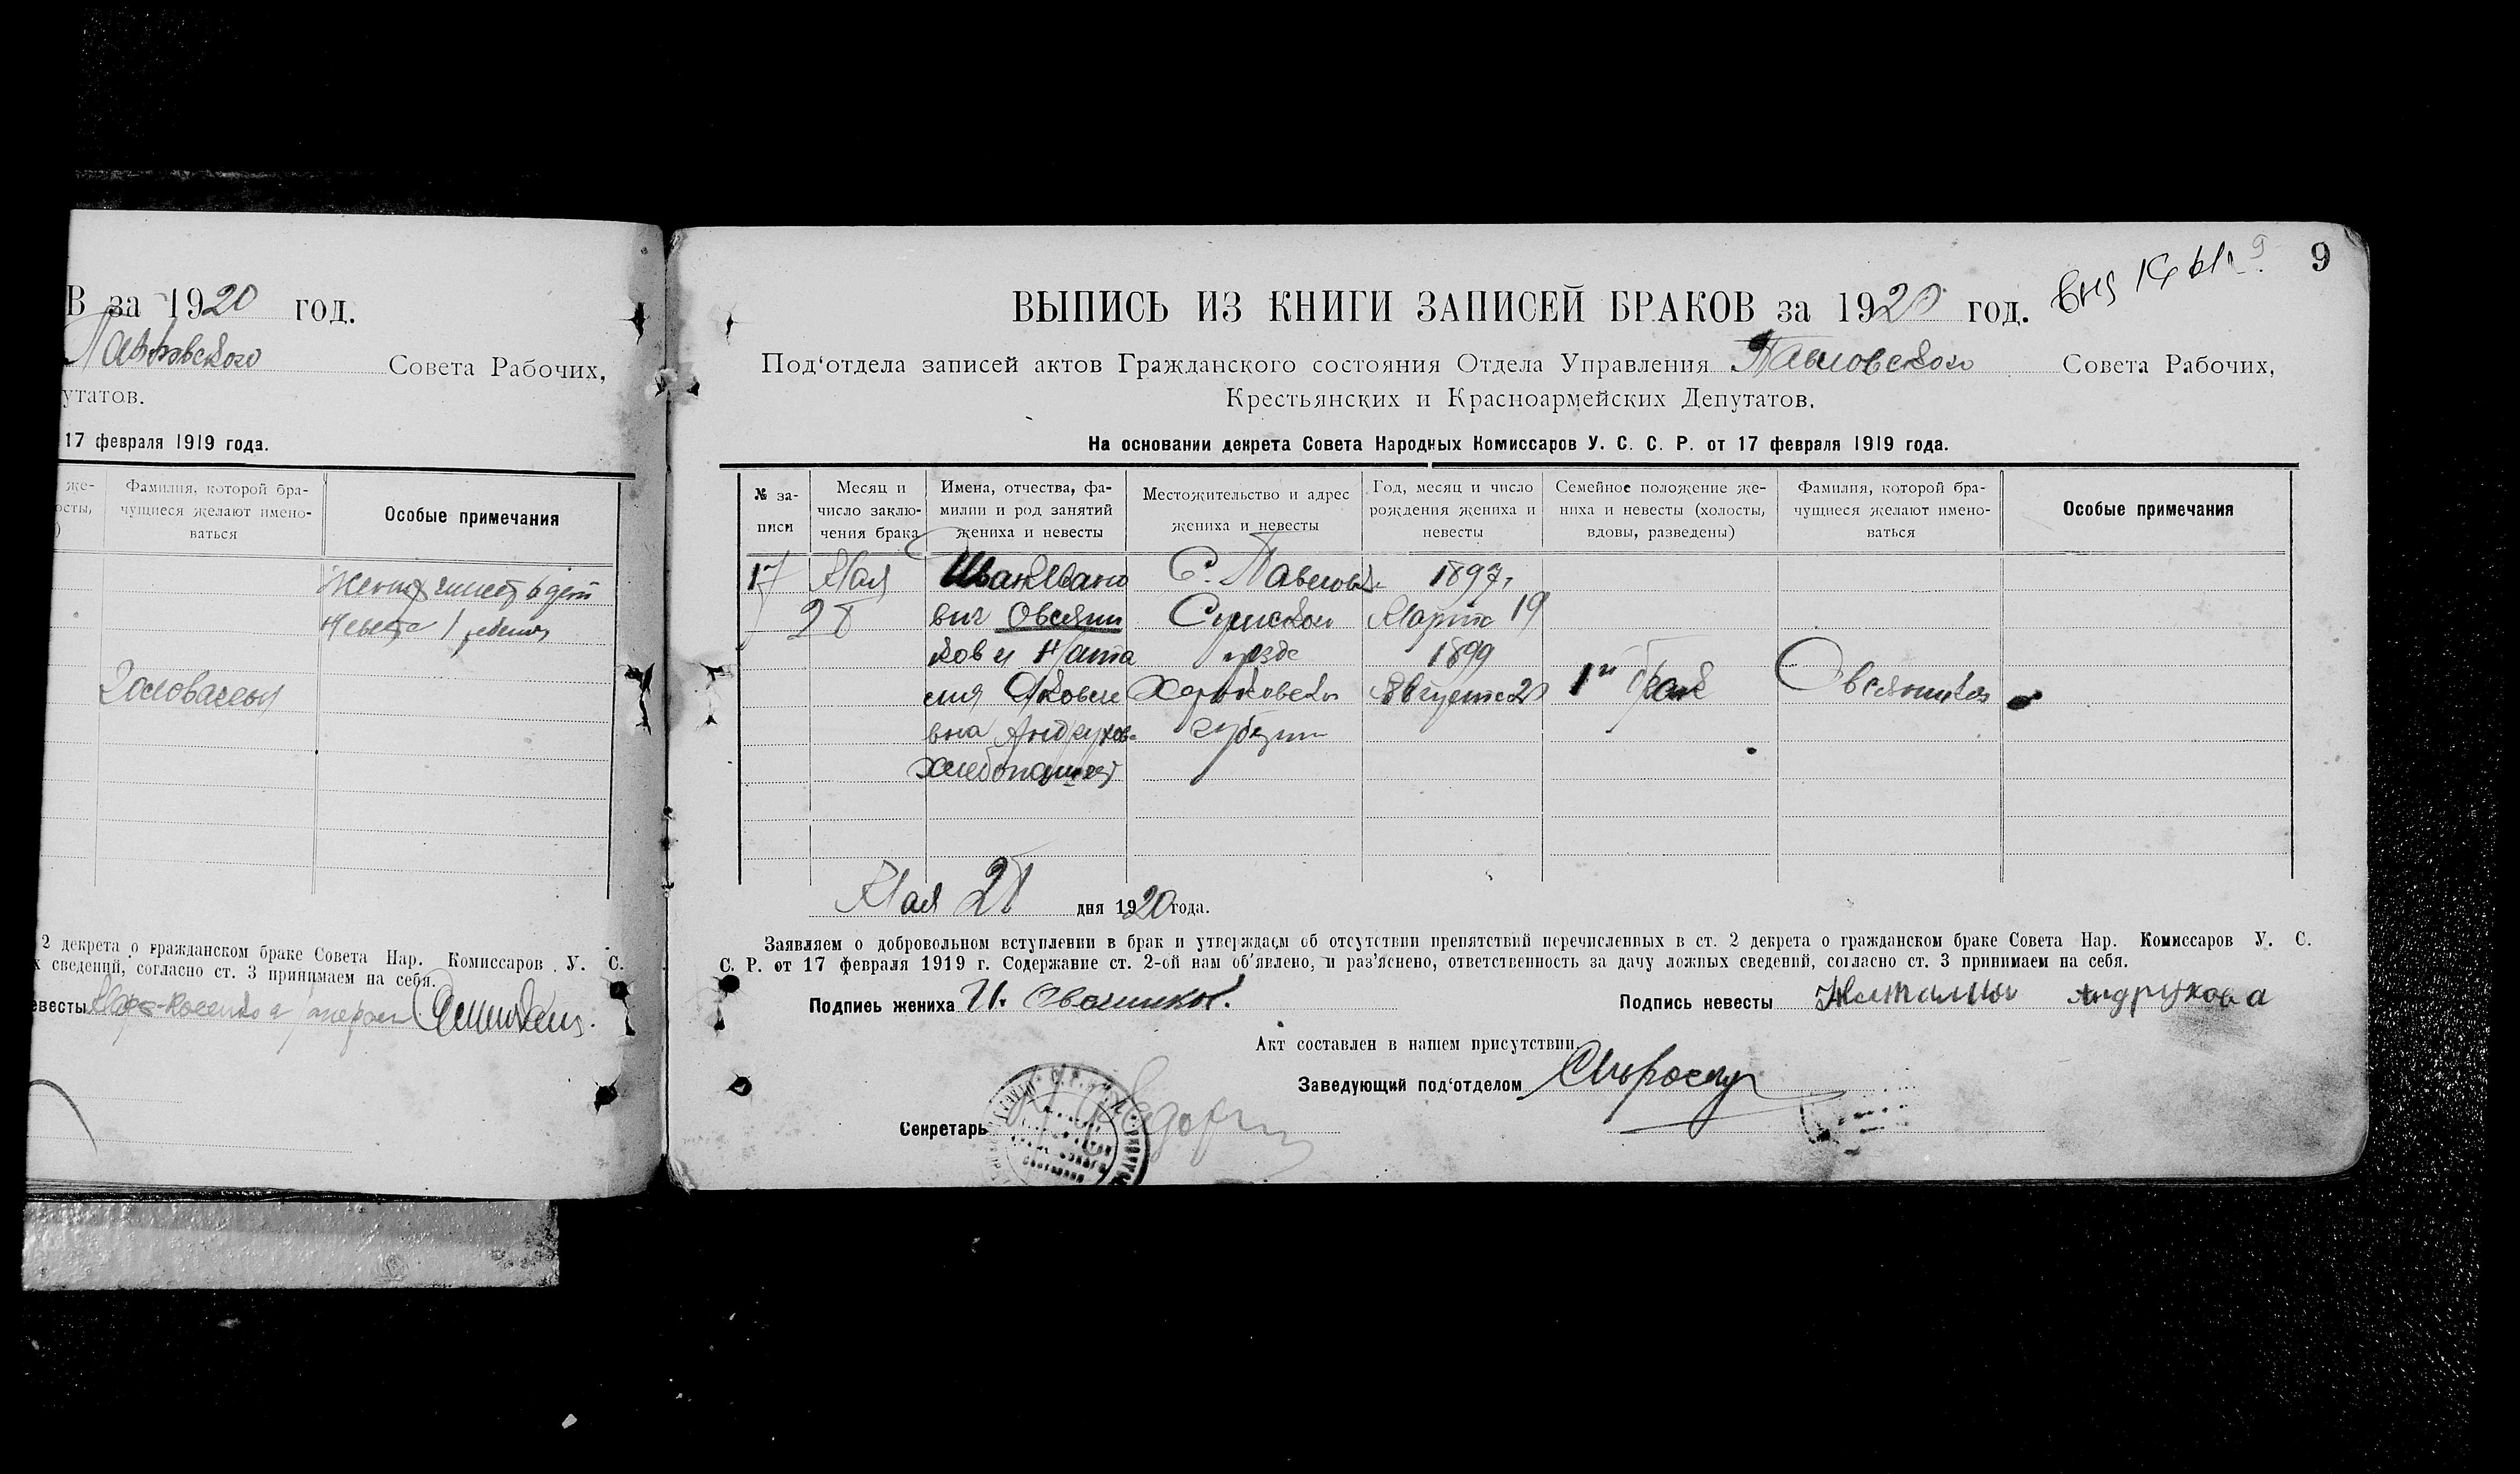 В за 1920 год.
Павловского Совета Рабочих,
утатов.
17 февраля 1919 года.
же-
осты,
)
Фамилия, которой бра-
чущиеся желают имено-
ваться
Особые примечания
Жених имеет 6 дет
Невеста 1
2 декрета о гражданском браке Совета Нар. Комиссаров У. С.
х сведений, согласно ст. 3 принимаем на себя.
евесты
9
9
ВЫПИСЬ ИЗ КНИГИ ЗАПИСЕЙ БРАКОВ за 1920 год.
Под‘отдела записей актов Гражданского состояния Отдела Управления Павловского Совета Рабочих,
Крестьянских и Красноармейских Депутатов.
На основании декрета Совета Народных Комиссаров У. С. С. Р. от 17 февраля 1919 года.
№ за-
писи
Месяц и
число заклю-
чения брака
Имена, отчества, фа-
милии и род занятий
жениха и невесты
Местожительство и адрес
жениха и невесты
Год, месяц и число
рождения жениха и
невесты
Семейное положение же-
ниха и невесты (холосты,
вдовы, разведены)
Фамилия, которой бра-
чущиеся желают имено-
ваться
Особые примечания
17
Мая
28
Иван Ивано
вич Овсянн
иков и Ната
лия Яковле
вна Андрухова
Хлебопашест
С. Павловка
Сумском
уезде
Харьковской
губернии
1897
Марта 19
1899
Августа 20
1й брак
Овсянников
Мая 28 дня 1920 года.
Заявляем о добровольном вступлении в брак и утверждаем об отсутствии препятствий перечисленных в ст. 2 декрета о гражданском браке Совета Нар. Комиссаров У. С.
С. Р. от 17 февраля 1919 г. Содержание ст. 2-ой нам об‘явлено, и раз‘яснено, ответственность за дачу ложных сведений, согласно ст. 3 принимаем на себя.
Подпись жениха И. Овсяников.
Подпись невесты Наталия Андрухова
Акт составлен в нашем присутствии.
Заведующий под‘отделом
Секретарь